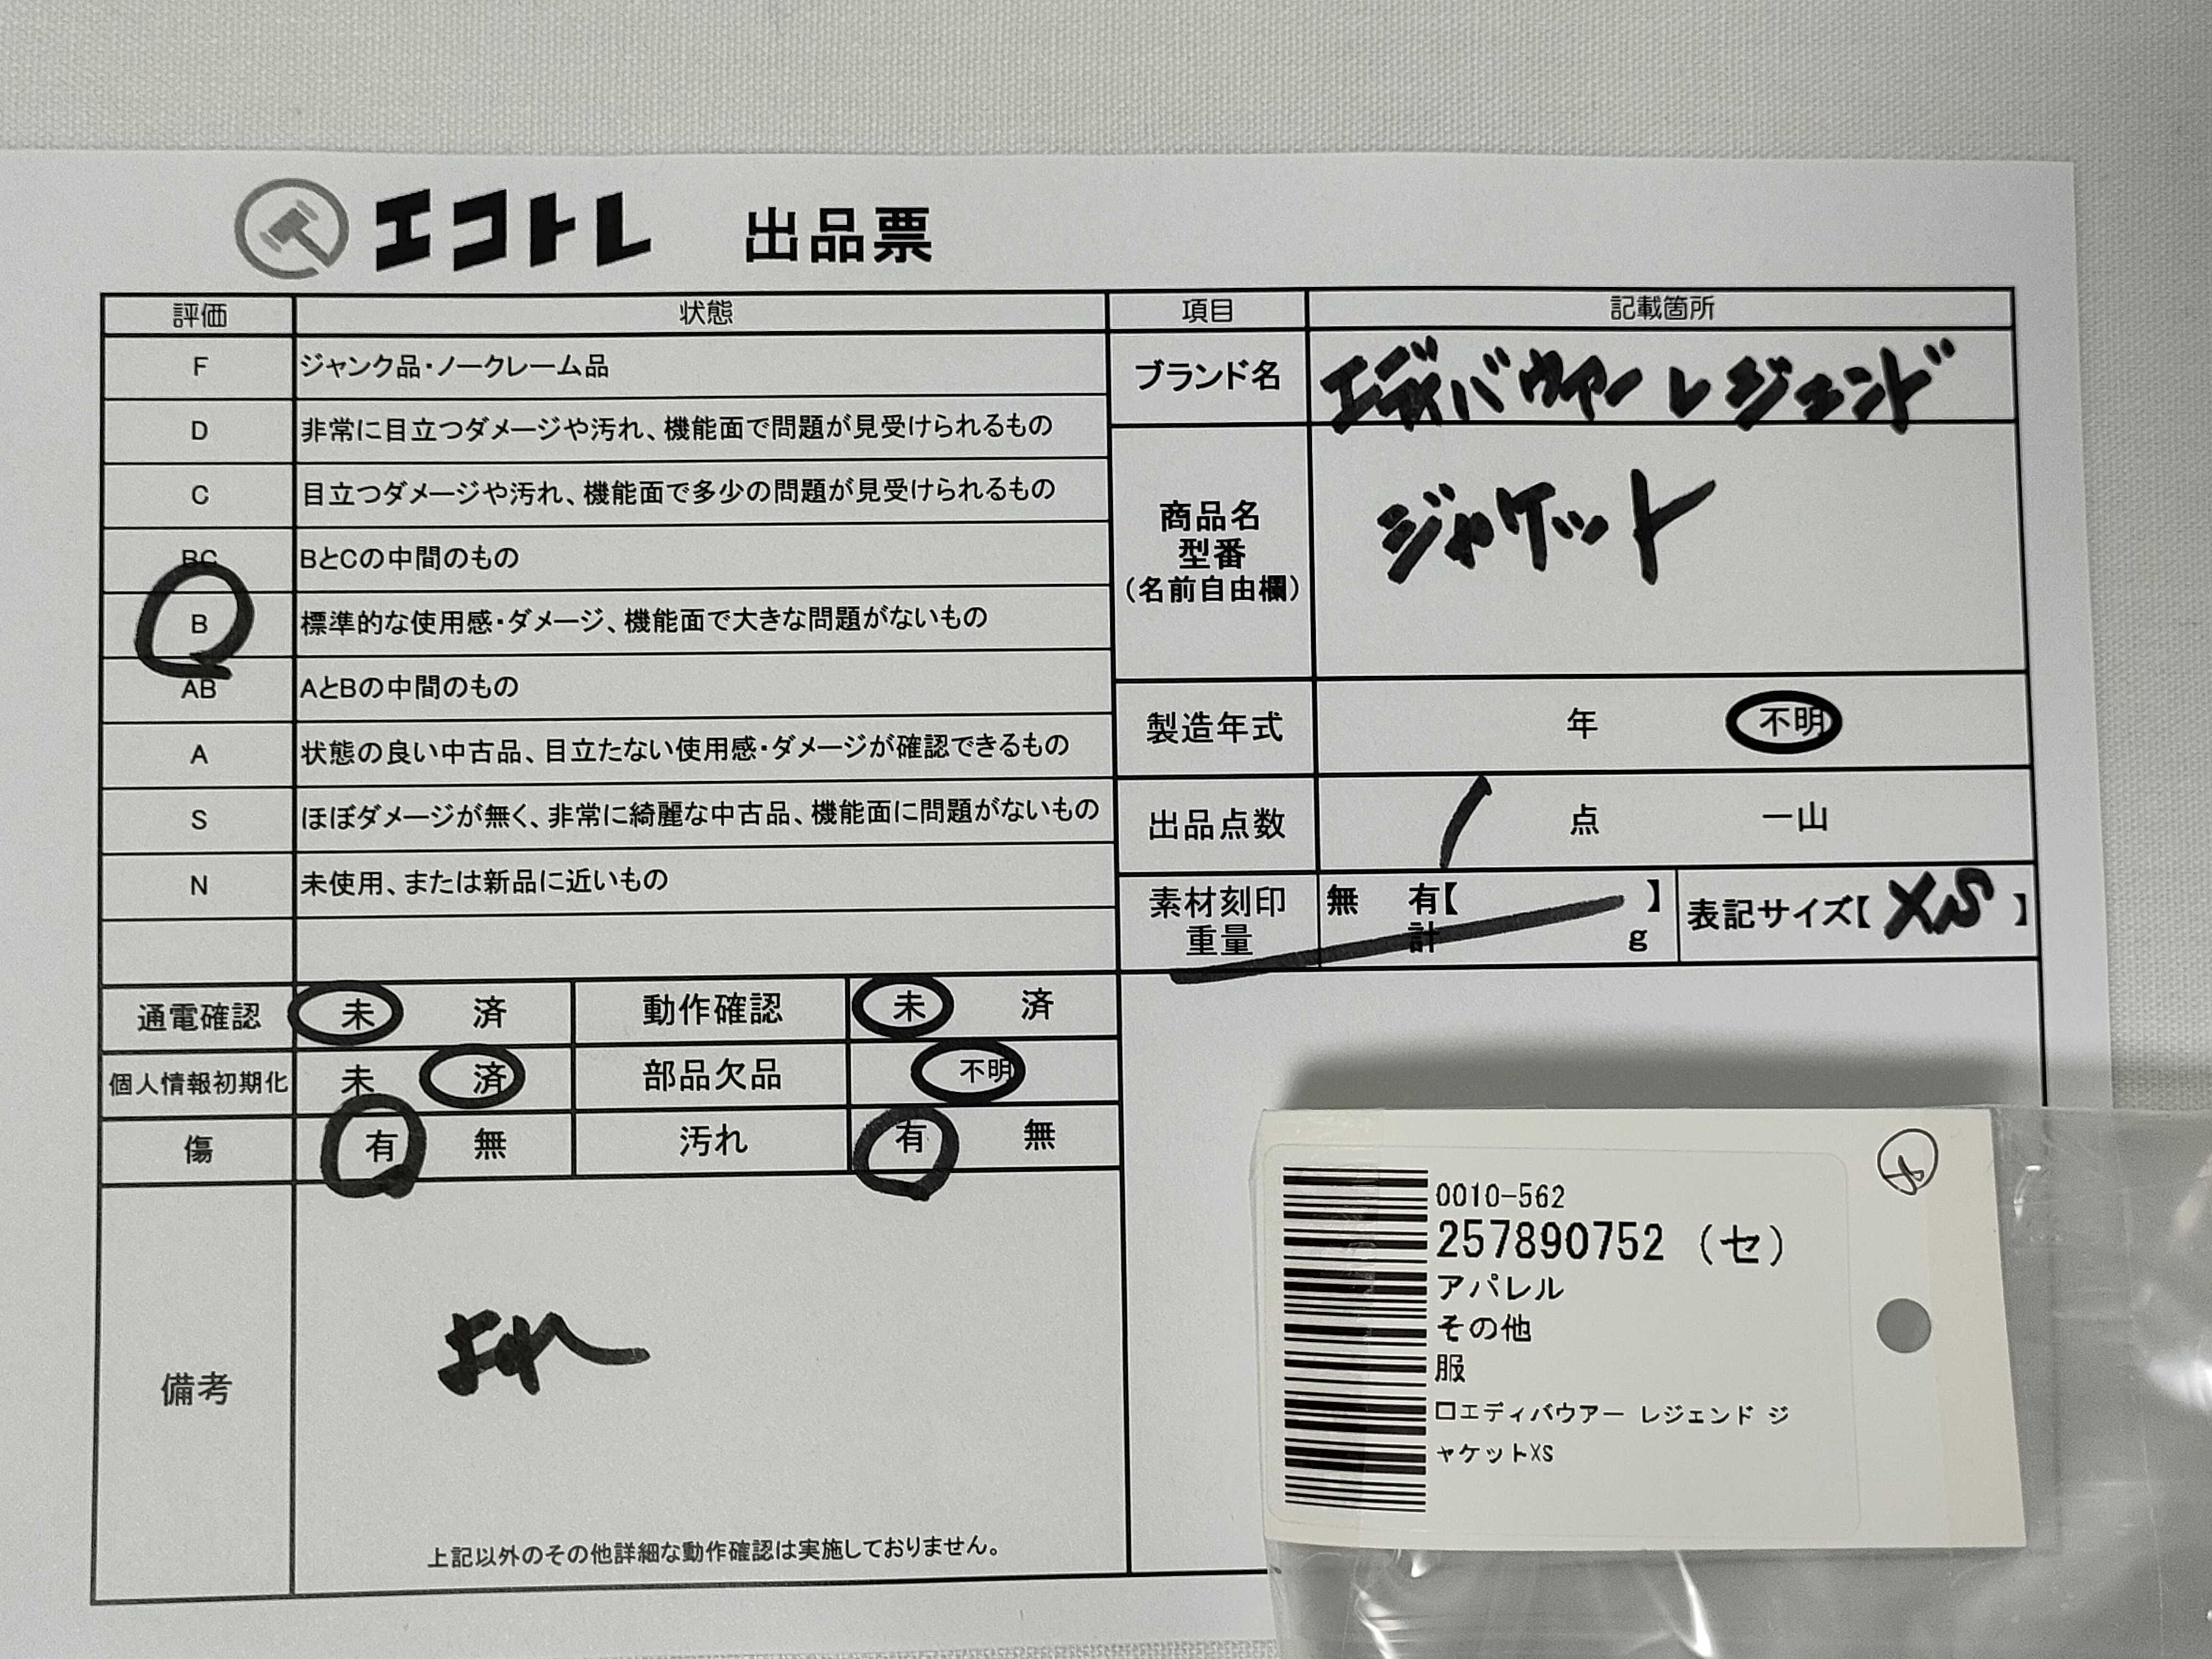 エコトレ 出品票
評価 状態 項目 記載箇所
F ジャンク品・ノークレーム品
D 非常に目立つダメージや汚れ、機能面で問題が見受けられるもの
C 目立つダメージや汚れ、機能面で多少の問題が見受けられるもの
BC BとCの中間のもの
B 標準的な使用感・ダメージ、機能面で大きな問題がないもの
AB AとBの中間のもの
A 状態の良い中古品、目立たない使用感・ダメージが確認できるもの
S ほぼダメージが無く、非常に綺麗な中古品、機能面に問題がないもの
N 未使用、または新品に近いもの
ブランド名 エディバウアー レジェンド
商品名
型番
(名前自由欄)
ジャケット
製造年式 年 不明
出品点数 1 点 一山
素材刻印 無 有【 】
重量 計 g
表記サイズ【 XS 】
通電確認 未 済 動作確認 未 済
個人情報初期化 未 済 部品欠品 不明
傷 有 無 汚れ 有 無
備考
よれ
上記以外のその他詳細な動作確認は実施しておりません。
0010-562
257890752 (セ)
アパレル
その他
服
口エディバウアー レジェンド ジ
ャケットXS